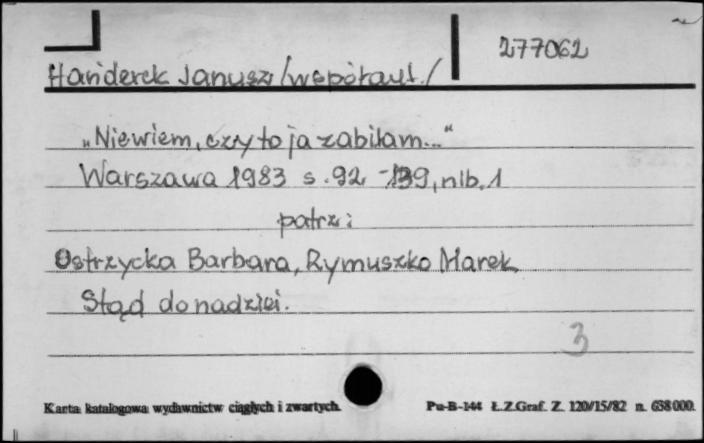 277062
Hańderek Janusz /współaut./
"Niewiem, czy to ja zabiłam..."
Warszawa 1983 s. 92 -139, nlb. 1
patrz:
Ostrzycka Barbara, Rymuszko Marek
Stąd do nadziei.
3
Karta katalogowa wydawnictw ciągłych i zwartych. Pu-B-144 Ł.Z.Graf. Z. 120/15/82 n. 638000.